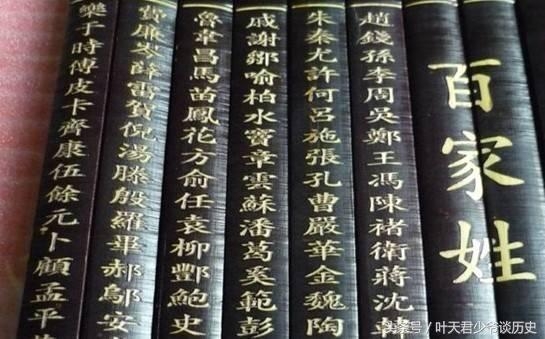 百家姓
趙錢孫李周吳鄭王馮陳褚衛蔣沈韓
朱秦尤許何呂施張孔曹嚴華金魏陶
戚謝鄒喻柏水竇章雲蘇潘葛奚範彭
魯韋昌馬苗鳳花方俞任袁柳酆鮑史
費廉岑薛雷賀倪湯滕殷羅畢郝鄔安
樂于時傅皮卡齊康伍餘元卜顧孟平
头条号 / 叶天君少爷谈历史